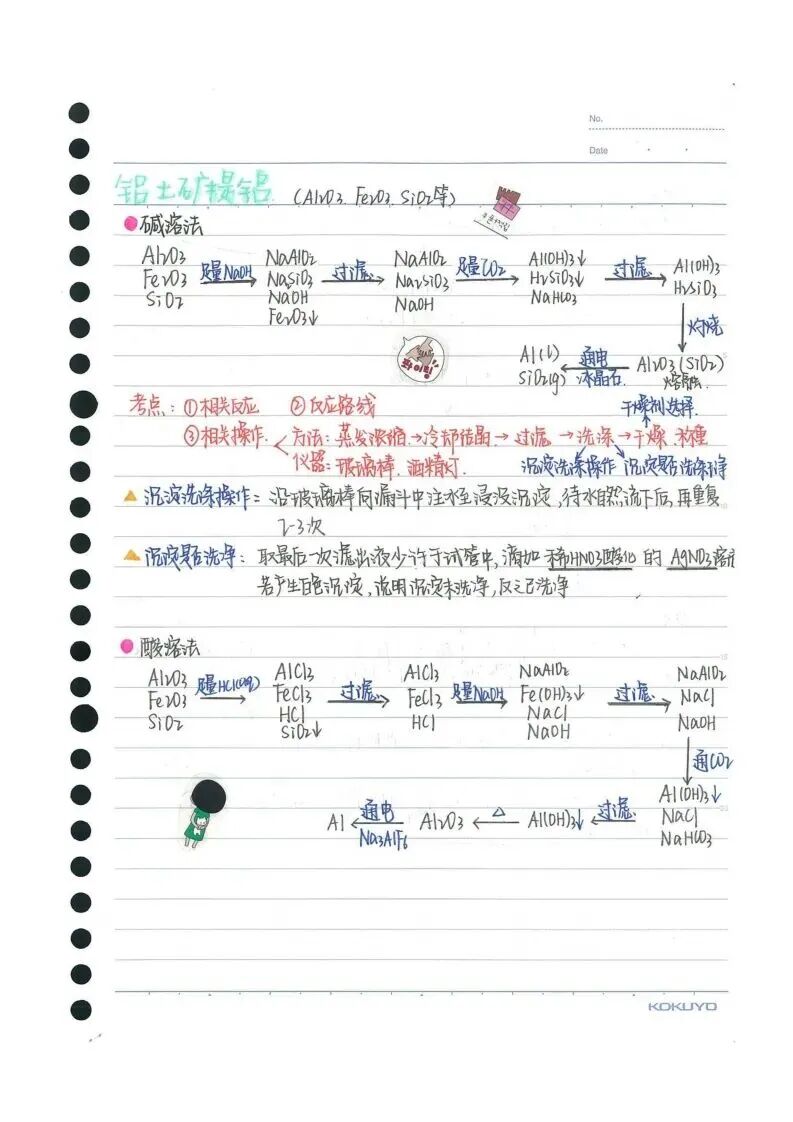 No.
Date
铝土矿提铝 (Al₂O₃、Fe₂O₃、SiO₂等)
碱溶法
Al₂O₃ Fe₂O₃ SiO₂ 足量NaOH→ NaAlO₂ NaSiO₃ NaOH Fe₂O₃↓ 过滤→ NaAlO₂ Na₂SiO₃ NaOH 足量CO₂→ Al(OH)₃↓ H₂SiO₃↓ NaHCO₃ 过滤→ Al(OH)₃ H₂SiO₃
↓灼烧
Al(l) SiO₂(g) ←通电 冰晶石 Al₂O₃(SiO₂) 熔融
考点:①相关反应 ②反应路线 干燥剂选择
③相关操作 方法:蒸发浓缩→冷却结晶→过滤→洗涤→干燥、称重
仪器:玻璃棒、酒精灯 沉淀洗涤操作 沉淀是否洗涤净
沉淀洗涤操作:沿玻璃棒向漏斗中注水至浸没沉淀,待水自然流下后,再重复
2-3次
沉淀是否洗净:取最后一次滤出液少许于试管中,滴加稀HNO₃酸化的AgNO₃溶液
若产生白色沉淀,说明沉淀未洗净,反之已洗净
酸溶法
Al₂O₃ Fe₂O₃ SiO₂ 足量HCl(aq)→ AlCl₃ FeCl₃ HCl SiO₂↓ 过滤→ AlCl₃ FeCl₃ HCl 足量NaOH→ NaAlO₂ Fe(OH)₃↓ NaCl NaOH 过滤→ NaAlO₂ NaCl NaOH
↓通CO₂
Al ←通电 Na₃AlF₆ Al₂O₃ ←△ Al(OH)₃↓ ←过滤 Al(OH)₃↓ NaCl NaHCO₃
KOKUYO